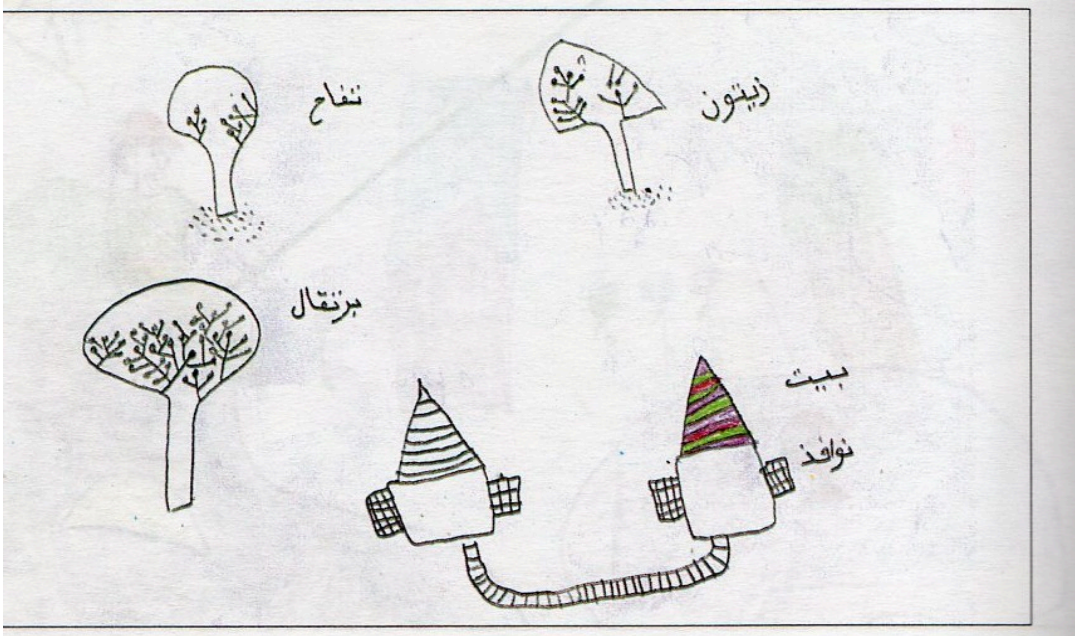 زيتون
تفاح
برتقال
بيت
نوافذ